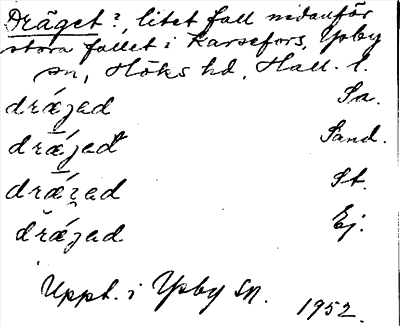 Dräget?, litet fall nedanför
stora fallet i Karsefors, Ysby
sn, Höks hd, Hall. l.
drǽjad Sa.
drǽjad Sand.
drǽjad St.
drǽjad Ej.
Uppt. i Ysby sn. 1952.